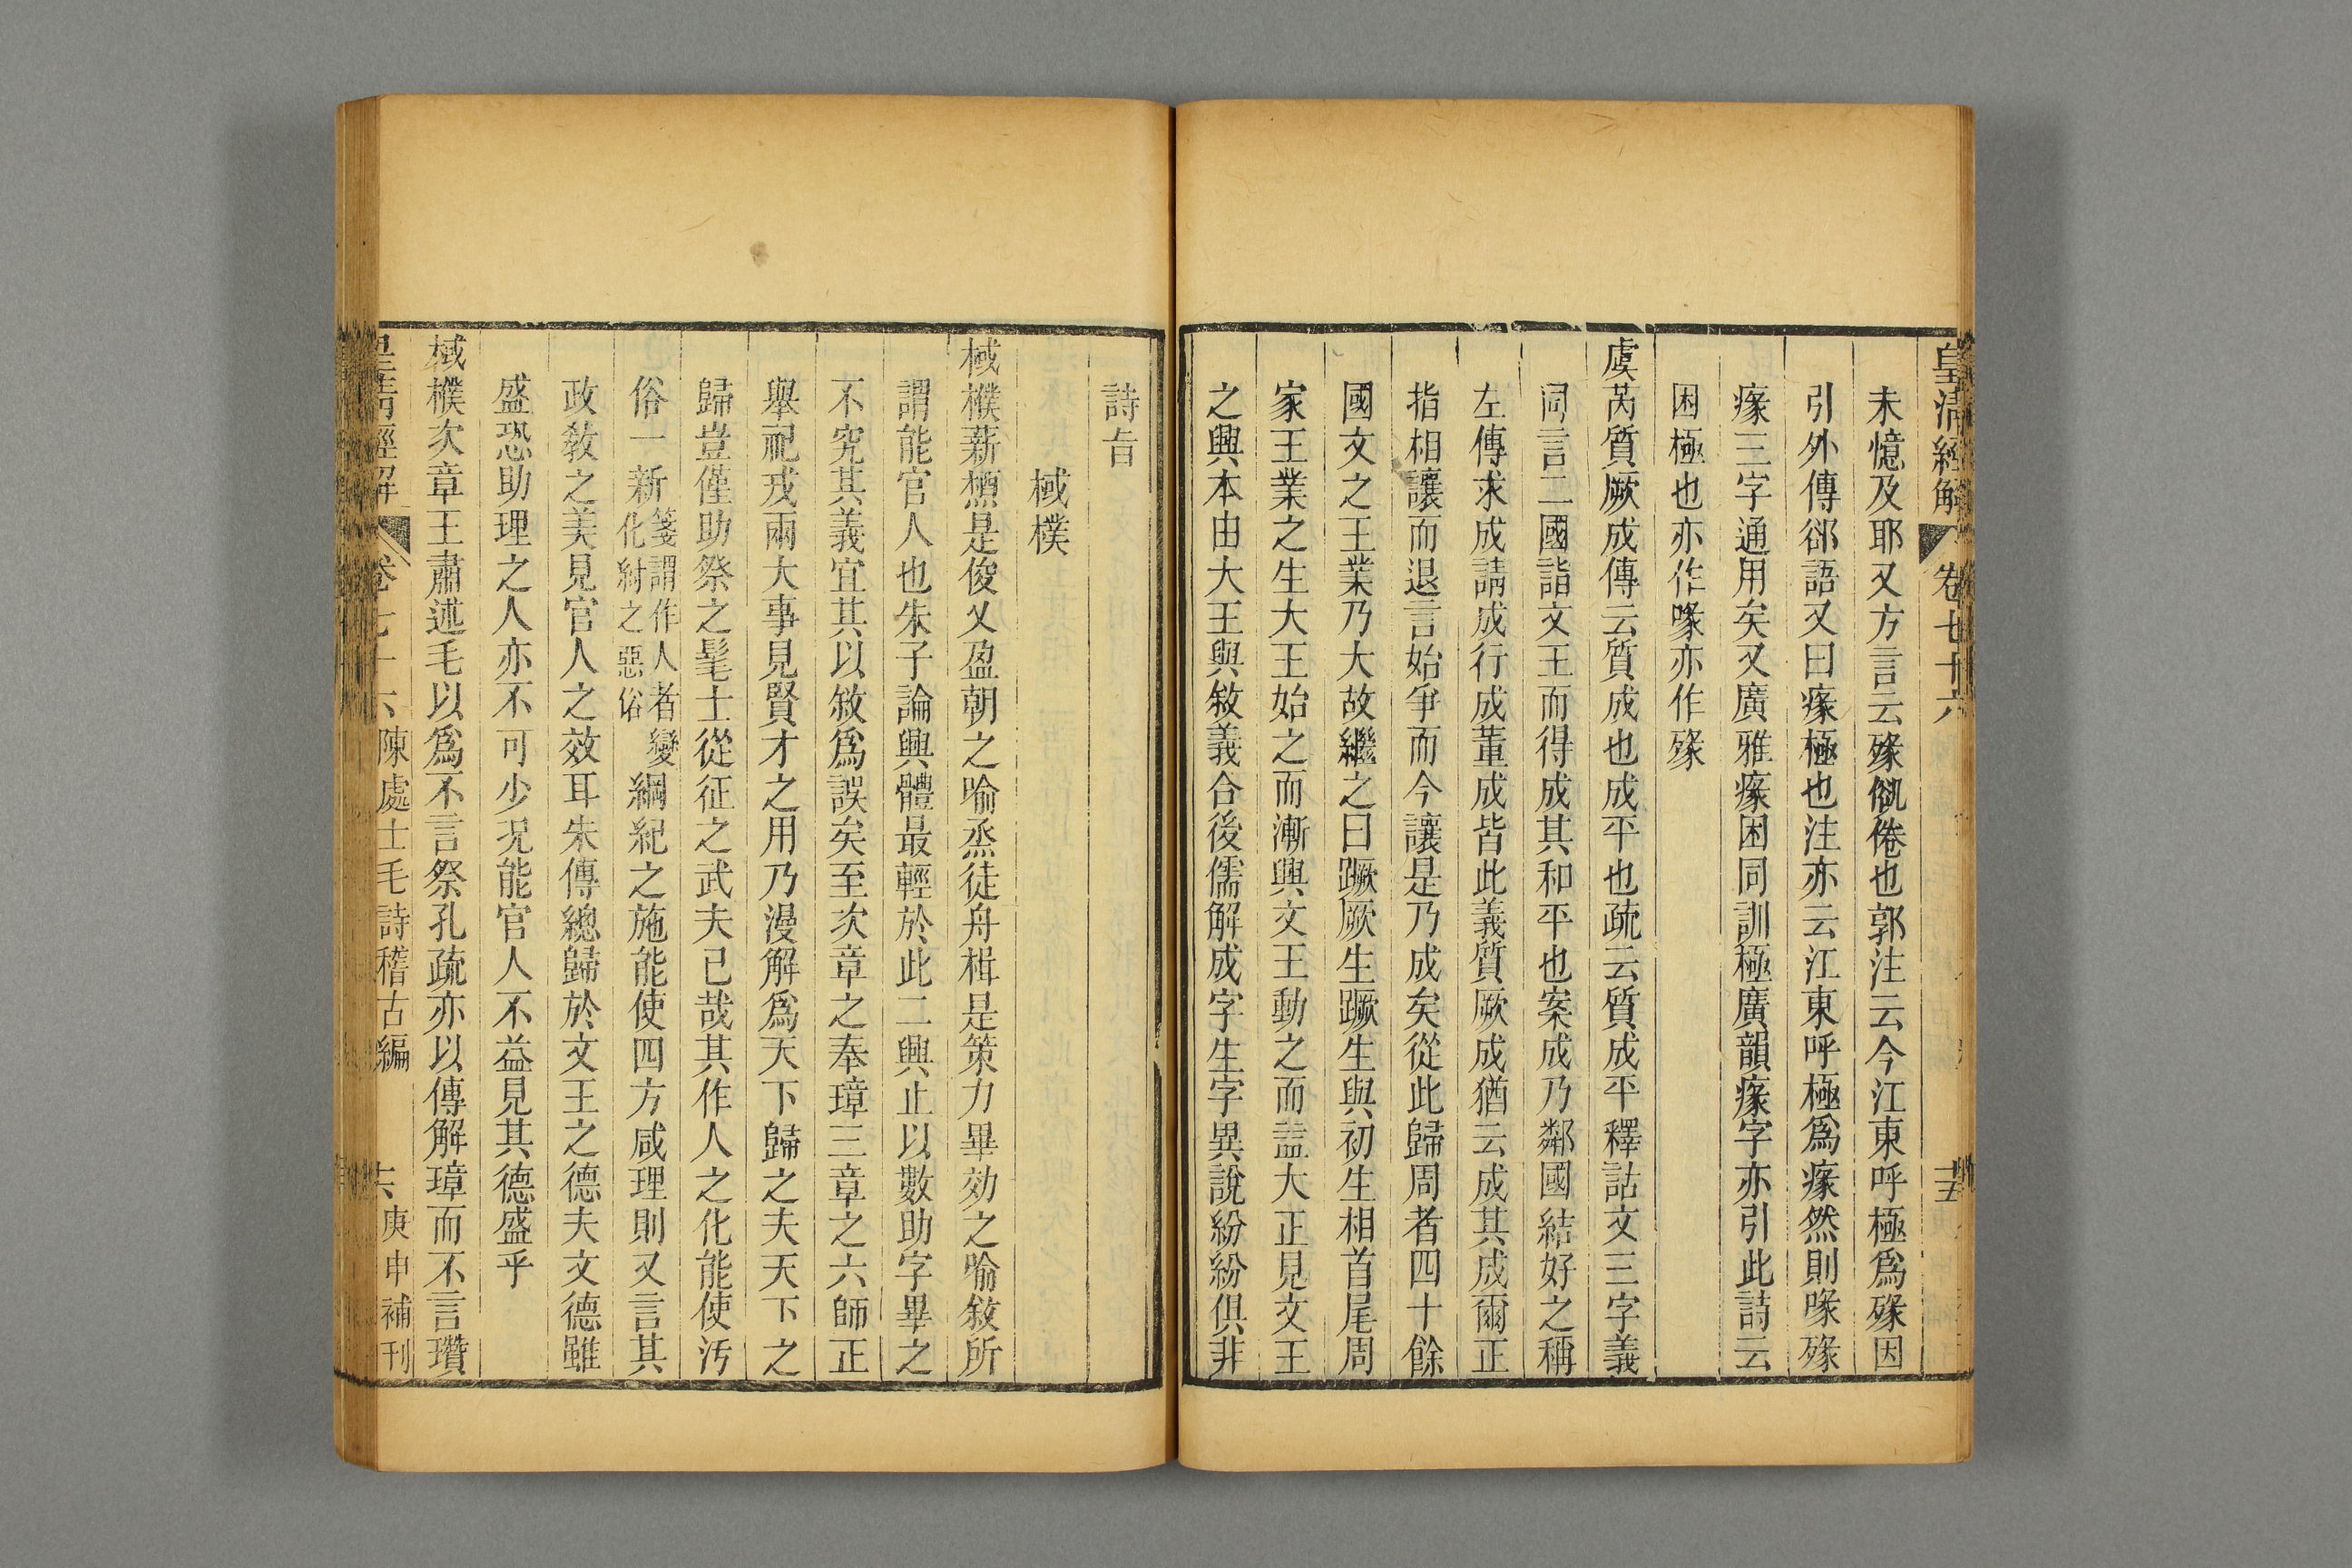 皇清經解 卷七十六 十五
未憶及耶又方言云㱵㑮倦也郭注云今江東呼極爲㱵因
引外傳郤語又曰瘃極也注亦云江東呼極爲瘃然則喙㱵
瘃三字通用矣又廣雅瘃困同訓極廣韻瘃字亦引此詩云
困極也亦作喙亦作㱵
虞芮質厥成傳云質成也成平也疏云質成平釋詁文三字義
同言二國詣文王而得成其和平也案成乃鄰國結好之稱
左傳求成請成行成董成皆此義質厥成猶云成其成爾正
指相讓而退言始爭而今讓是乃成矣從此歸周者四十餘
國文之王業乃大故繼之曰蹶厥生蹶生與初生相首尾周
家王業之生大王始之而漸興文王動之而益大正見文王
之興本由大王與敘義合後儒解成字生字異說紛紛俱非
詩旨
棫樸
棫樸薪槱是俊乂盈朝之喻烝徒舟楫是策力畢効之喻敘所
謂能官人也朱子論興體最輕於此二興止以數助字畢之
不究其義宜其以敘爲誤矣至次章之奉璋三章之六師正
舉祀戎兩大事見賢才之用乃漫解爲天下歸之夫天下之
歸豈僅助祭之髦士從征之武夫已哉其作人之化能使污
俗一新箋謂作人者變化紂之惡俗綱紀之施能使四方咸理則又言其
政敎之美見官人之效耳朱傳總歸於文王之德夫文德雖
盛恐助理之人亦不可少况能官人不益見其德盛乎
棫樸次章王肅述毛以爲不言祭孔疏亦以傳解璋而不言瓚
皇清經解 卷七十六 陳處士毛詩稽古編 六 庚申補刊